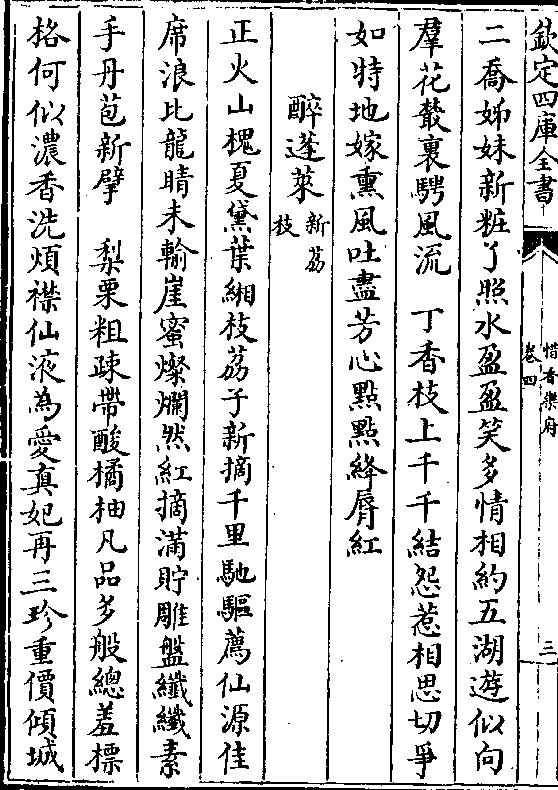 欽定四庫全書
惜香樂府
卷四
三
二喬姊妹新粧了照水盈盈笑多情相約五湖遊似向
羣花叢裏騁風流　丁香枝上千千結怨惹相思切爭
如特地嫁熏風吐盡芳心點點絳脣紅
醉蓬萊新荔枝
正火山槐夏黛葉緗枝荔子新摘千里馳驅薦仙源佳
席浪比龍睛未輸崖蜜燦爛然紅摘滿貯雕盤纖纖素
手丹苞新擘　梨栗粗疎帶酸橘柚凡品多般總羞標
格何似濃香洗煩襟仙液為愛真妃再三珍重價傾城